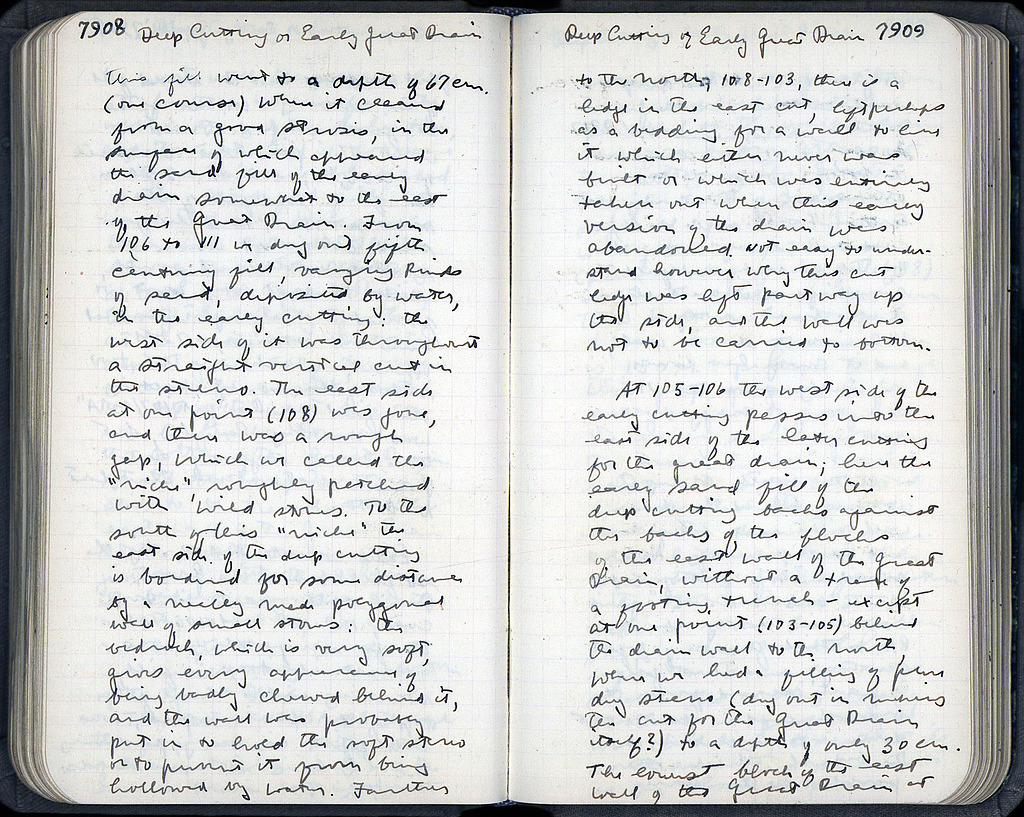 7908 Deep Cutting or Early Great Drain
this fill went to a depth of 67 cm.
(one course) when it cleaned
from a good strosis, in the
surface of which appeared
the sand fill of the early
drain somewhat to the east
of the Great Drain. From
106 to 111 we dug out fifth
century fill, varying kinds
of sand, deposited by water,
in the early cutting: the
west side of it was throughout
a straight vertical cut in
the stereo. The east side
at one point (108) was gone,
and there was a rough
gap, which we called the
"niche", roughly patched
with wild stones. To the
south of this "niche" the
east side of the deep cutting
is bordered for some distance
by a neatly made polygonal
wall of small stones: the
bedrock, which is very soft,
gives every appearance of
being badly chewed behind it,
and the wall was probably
put in to hold the soft stereo
or to prevent it from being
hollowed by water. Farther
Deep Cutting of Early Great Drain 7909
to the north, 108-103, there is a
ledge in the east cut, left perhaps
as a bedding for a wall to line
it which either never was
built or which was entirely
taken out when this early
version of the drain was
abandoned. Not easy to under-
stand however why this cut
ledge was left part way up
the side, and the wall was
not to be carried to bottom.
At 105-106 the west side of the
early cutting passes into the
east side of the later cutting
for the great drain; here the
early sand fill of the
deep cutting backs against
the backs of the blocks
of the east wall of the Great
Drain, without a trace of
a footing trench - except
at one point (103-105) behind
the drain wall to the north,
where we had a filling of pure
dug stereo (dug out in making
the cut for the Great Drain
itself?) to a depth of only 30 cm.
The lowest block of the east
wall of the Great Drain at